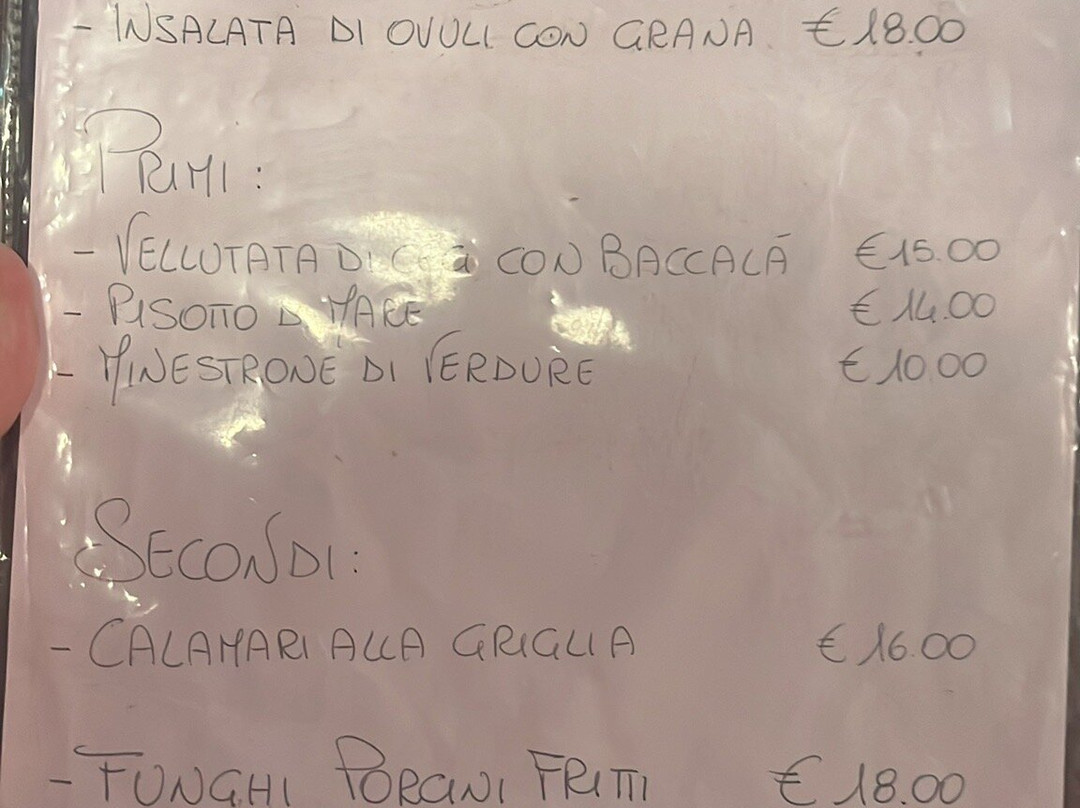 - INSALATA DI OVULI CON GRANA € 18.00
PRIMI:
- VELLUTATA DI CON BACCALÀ € 15.00
- RISOTTO DI MARE € 14.00
- MINESTRONE DI VERDURE € 10.00
SECONDI:
- CALAMARI ALLA GRIGLIA € 16.00
- FUNGHI PORCINI FRITTI € 18.00